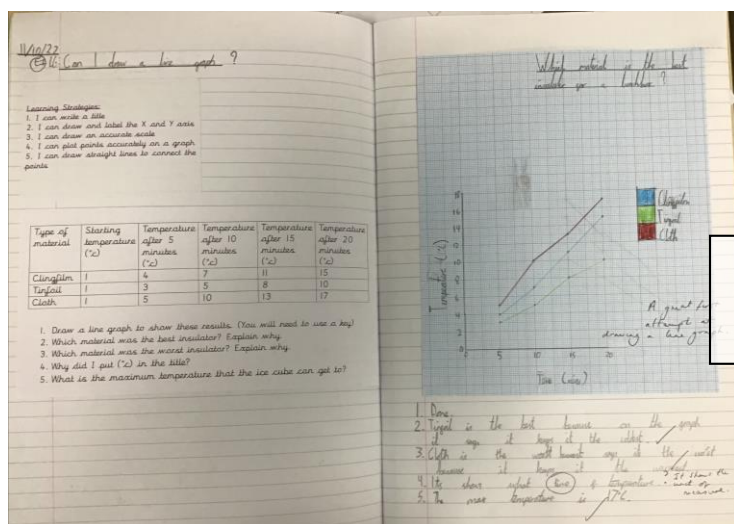 11/10/22
L6: Can I draw a line graph ?
Learning Strategies:
1. I can write a title
2. I can draw and label the X and Y axis
3. I can draw an accurate scale
4. I can plot points accurately on a graph
5. I can draw straight lines to connect the
points
Type of material Starting temperature (°c) Temperature after 5 minutes (°c) Temperature after 10 minutes (°c) Temperature after 15 minutes (°c) Temperature after 20 minutes (°c)
Clingfilm 1 4 7 11 15
Tinfoil 1 3 5 8 10
Cloth 1 5 10 13 17
1. Draw a line graph to show these results. (You will need to use a key)
2. Which material was the best insulator? Explain why.
3. Which material was the worst insulator? Explain why.
4. Why did I put (°c) in the title?
5. What is the maximum temperature that the ice cube can get to?
Which material is the best
insulator for a lunchbox ?
Clingfilm
Tinfoil
Cloth
Temperature (°c)
18
16
14
8
6
4
2
0
5 10 15 20
Time (mins)
A great first
attempt at
drawing a line graph
1. Done
2. Tinfoil is the best because on the graph
it says it keeps it the coldest.
3. Cloth is the worst because it keeps it the
4. Its shows what of temperature. It shows the unit of
5. The max temperature is 17°C.